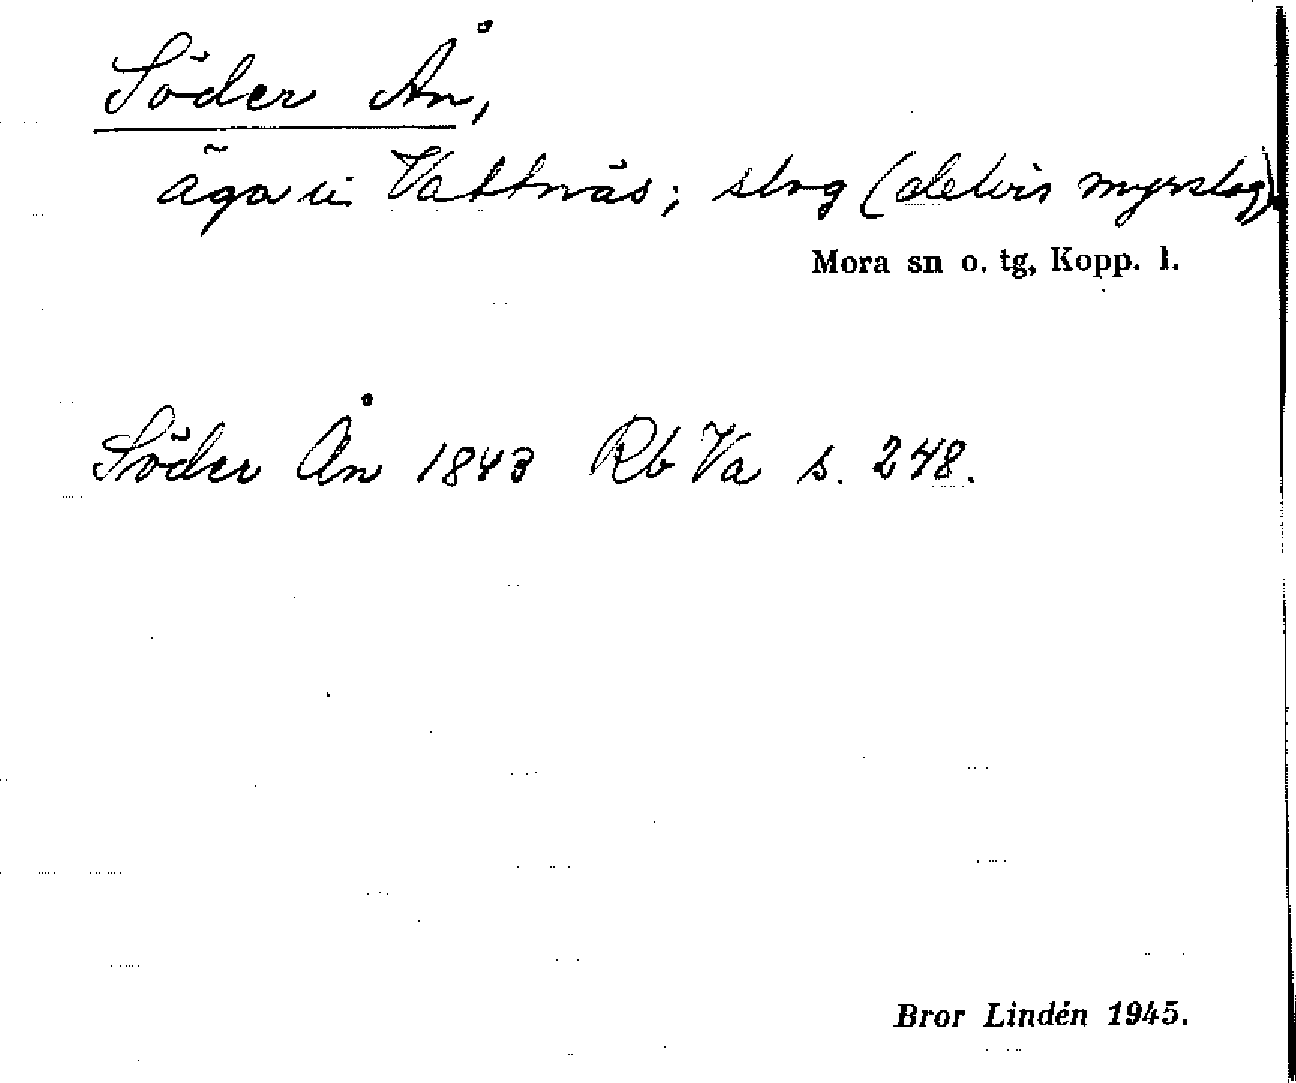 Söder Ån,
ägor i Vattnäs; slog (delvis myrslog)
Mora sn o. tg, Kopp. l.
Söder Ån 1843 Rb Va s. 248.
Bror Lindén 1945.